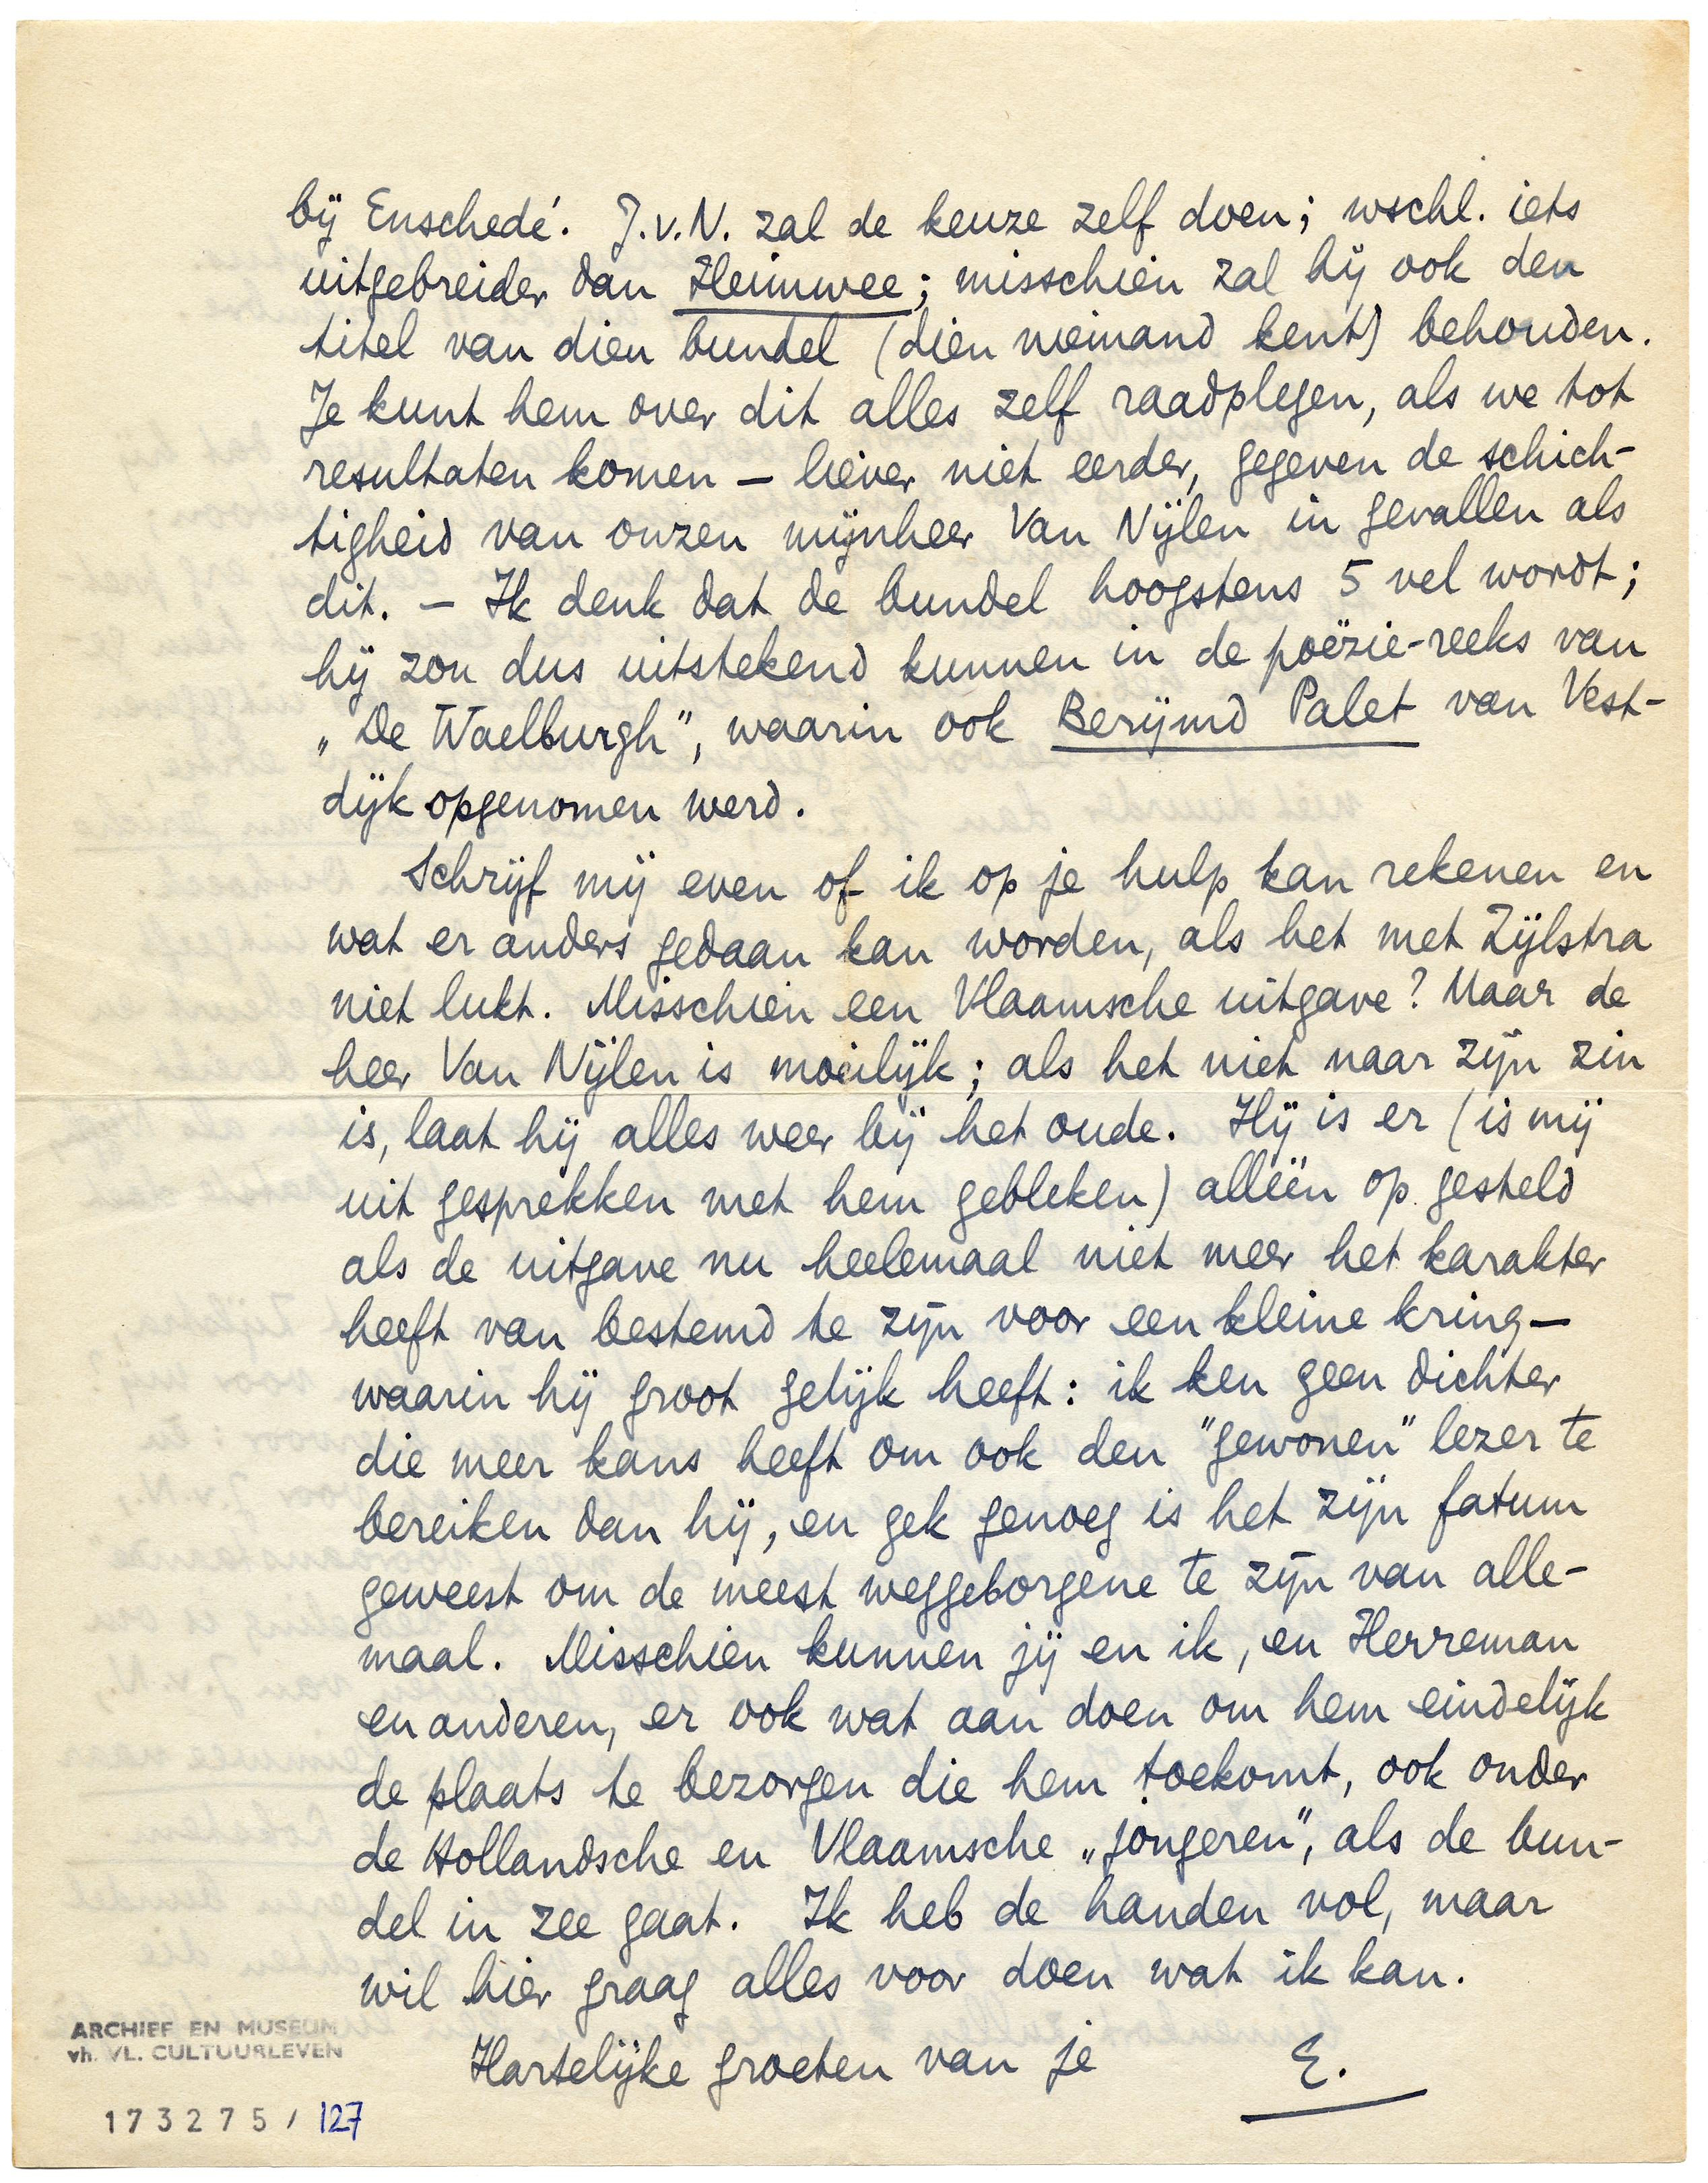 bij Enschedé. J.v.N. zal de keuze zelf doen; wschl. iets
uitgebreider dan Heimwee; misschien zal hij ook den
titel van dien bundel (dien niemand kent) behouden.
Je kunt hem over dit alles zelf raadplegen, als we tot
resultaten komen – liever niet eerder, gegeven de schich-
tigheid van onzen mijnheer Van Nijlen in gevallen als
dit. – Ik denk dat de bundel hoogstens 5 vel wordt;
hij zou dus uitstekend kunnen in de poëzie-reeks van
„De Waelburgh”, waarin ook Berijmd Palet van Vest-
dijk opgenomen werd.
Schrijf mij even of ik op je hulp kan rekenen en
wat er anders gedaan kan worden, als het met Zijlstra
niet lukt. Misschien een Vlaamsche uitgave? Maar de
heer Van Nijlen is moeilijk; als het niet naar zijn zin
is, laat hij alles weer bij het oude. Hij is er (is mij
uit gesprekken met hem gebleken) alléén op gesteld
als de uitgave nu heelemaal niet meer het karakter
heeft van bestemd te zijn voor een kleine kring –
waarin hij groot gelijk heeft: ik ken geen dichter
die meer kans heeft om ook den "gewonen" lezer te
bereiken dan hij, en gek genoeg is het zijn fatum
geweest om de meest weggeborgene te zijn van alle-
maal. Misschien kunnen jij en ik, en Herreman
en anderen, er ook wat aan doen om hem eindelijk
de plaats te bezorgen die hem toekomt, ook onder
de Hollandsche en Vlaamsche „jongeren”, als de bun-
del in zee gaat. Ik heb de handen vol, maar
wil hier graag alles voor doen wat ik kan.
Hartelijke groeten van je E.
ARCHIEF EN MUSEUM
vh. VL. CULTUURLEVEN
173275 / 127